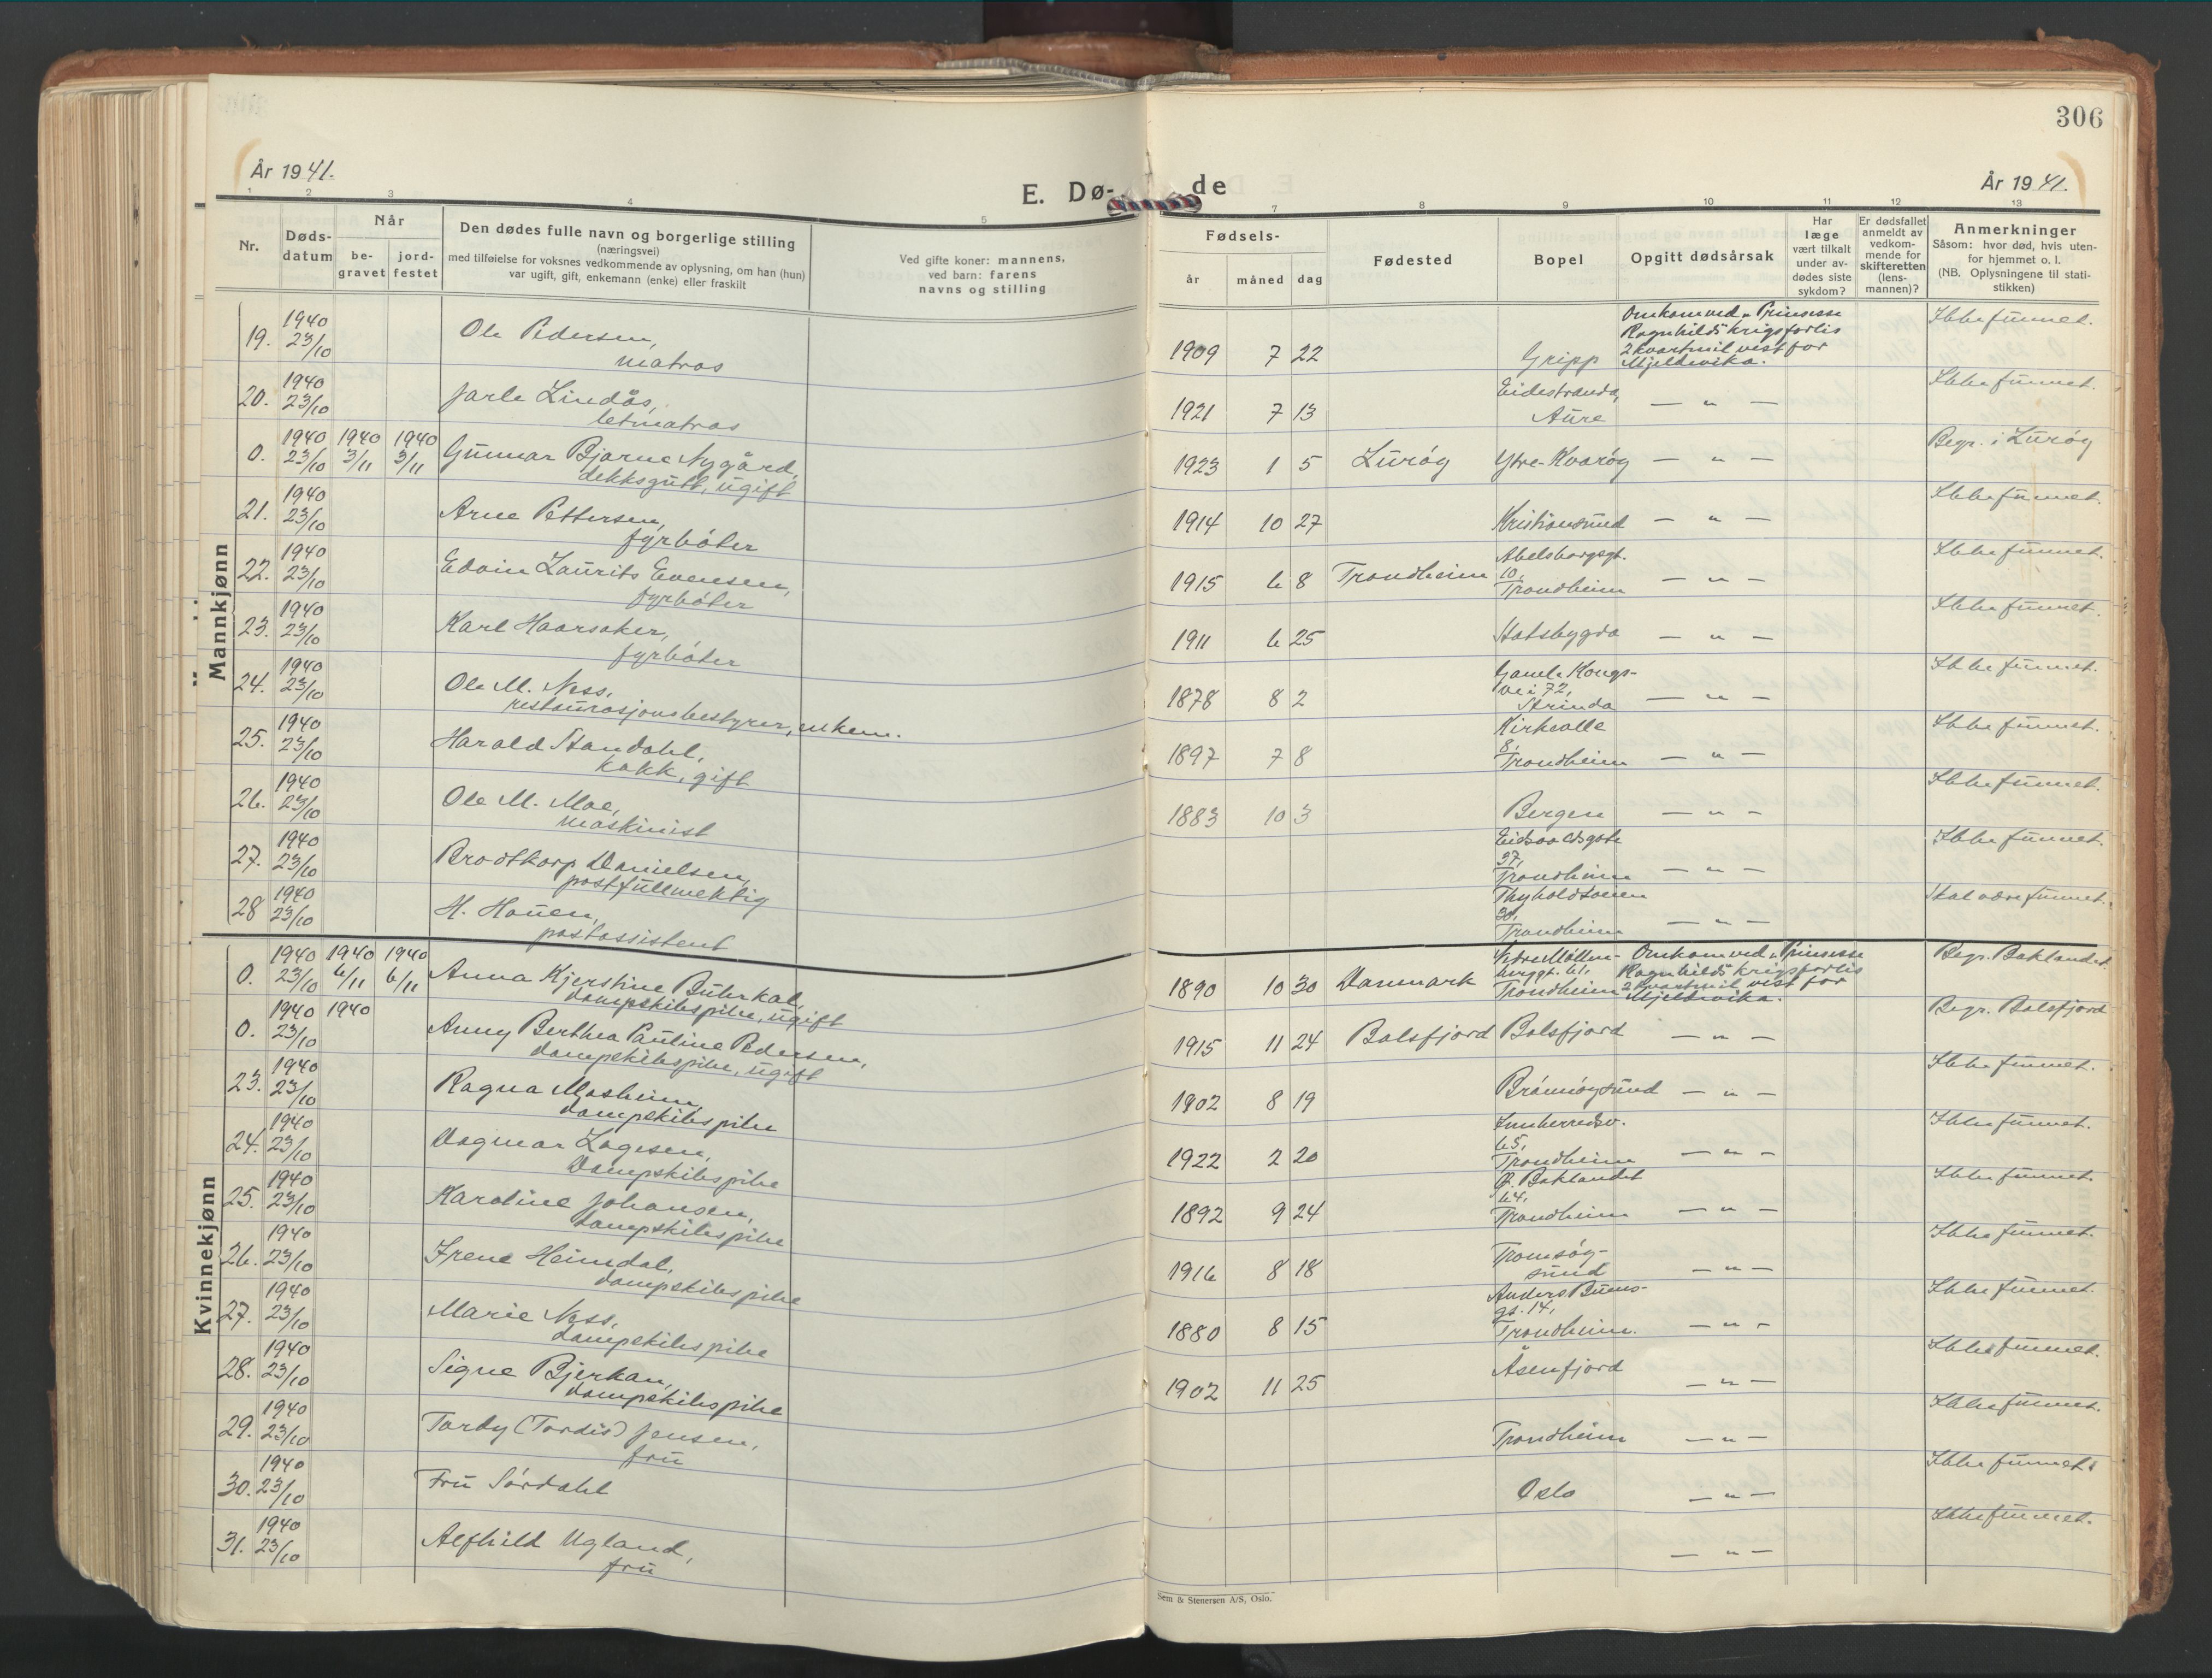 306
År 1941.
E. Dø-
de
År 1941.
1 2 3 4 5 7 8 9 10 11 12 13
Nr.
Døds-
datum
Når
be-
gravet
jord-
festet
Den dødes fulle navn og borgerlige stilling
(næringsvei)
med tilføielse for voksnes vedkommende av oplysning, om han (hun)
var ugift, gift, enkemann (enke) eller fraskilt
Ved gifte koner: mannens,
ved barn: farens
navns og stilling
Fødsels-
år måned dag
Fødested
Bopel
Opgitt dødsårsak
Har
læge
vært tilkalt
under av-
dødes siste
sykdom?
Er dødsfallet
anmeldt av
vedkom-
mende for
skifteretten
(lens-
mannen)?
Anmerkninger
Såsom: hvor død, hvis uten-
for hjemmet o. l.
(NB. Oplysningene til stati-
stikken)
Mannkjønn
19. 1940 23/10 Ole Pedersen,
matros
1909 7 22 Gripp
Omkom ved „Prinsesse
Ragnhilds" krigsforlis
2 kvartmil vest for
Mjeldevika.
Ikke funnet.
20. 1940 23/10 Jarle Lindås,
letmatros
1921 7 13 Eidestranda,
Aure — „ — Ikke funnet.
0. 1940 23/10 1940 3/11 1940 3/11 Gunnar Bjarne Nygård,
dekksgutt, ugift
1923 1 5 Lurøy Ytre-Kvarøy — „ — Begr. i Lurøy
21. 1940 23/10 Arne Pettersen,
fyrbøter
1914 10 27 Kristiansund — „ — Ikke funnet.
22. 1940 23/10 Edvin Laurits Evensen,
fyrbøter
1915 6 8 Trondheim Abelsborggt.
10,
Trondheim — „ — Ikke funnet.
23. 1940 23/10 Karl Haarsaker,
fyrbøter
1911 6 25 Statsbygda — „ — Ikke funnet.
24. 1940 23/10 Ole M. Ness,
restaurasjonsbestyrer, enkem.
1878 8 2 Gamle Kongs-
vei 72,
Strinda — „ — Ikke funnet.
25. 1940 23/10 Harald Standahl,
kokk, gift
1897 7 8 Kirkealle
8,
Trondheim — „ — Ikke funnet.
26. 1940 23/10 Ole M. Moe,
maskinist
1883 10 3 Bergen — „ — Ikke funnet.
27. 1940 23/10 Brodtkorp Danielsen,
postfullmektig
Eidsvoldsgate
37,
Trondheim — „ — Ikke funnet.
28 1940 23/10 H. Houen,
postassistent
Thyholdtveien
30,
Trondheim — „ — Skal være funnet.
Kvinnekjønn
0. 1940 23/10 1940 6/11 1940 6/11 Anna Kjerstine Buhrkal,
dampskibspike, ugift
1890 10 30 Danmark
berggt. 61,
Trondheim
Omkom ved „Prinsesse
Ragnhilds" krigsforlis
2 kvartmil vest for
Mjeldevika.
Begr. Baklandet.
0. 1940 23/10 1940 Anny Berthea Pauline Pedersen,
dampskibspike, ugift
1915 11 24 Balsfjord Balsfjord — „ — Begr. Balsfjord
23. 1940 23/10 Ragna Mosheim,
dampskibspike
1902 8 19 Brønnøysund — „ — Ikke funnet.
24. 1940 23/10 Dagmar Lagesen,
Dampskibspike
1922 2 20 Innherredsv.
65,
Trondheim — „ — Ikke funnet.
25. 1940 23/10 Karoline Johansen,
dampskibspike
1892 9 24 Ø. Baklandet
64,
Trondheim — „ — Ikke funnet.
26. 1940 23/10 Irene Heimdal,
dampskibspike
1916 8 18 Tromsøy-
sund — „ — Ikke funnet.
27. 1940 23/10 Marie Ness,
dampskibspike
1880 8 15 Anders Buens-
gt. 14,
Trondheim. — „ — Ikke funnet.
28. 1940 23/10 Signe Bjerkan,
dampskibspike
1902 11 25 Åsenfjord — „ — Ikke funnet.
29. 1940 23/10 Tordy (Tordis) Jensen,
fru
Trondheim — „ — Ikke funnet.
30. 1940 23/10 Fru Sørdahl
Oslo — „ — Ikke funnet.
31. 1940 23/10 Alfhild Ugland,
fru
— „ — Ikke funnet.
Sem & Stenersen A/S, Oslo.